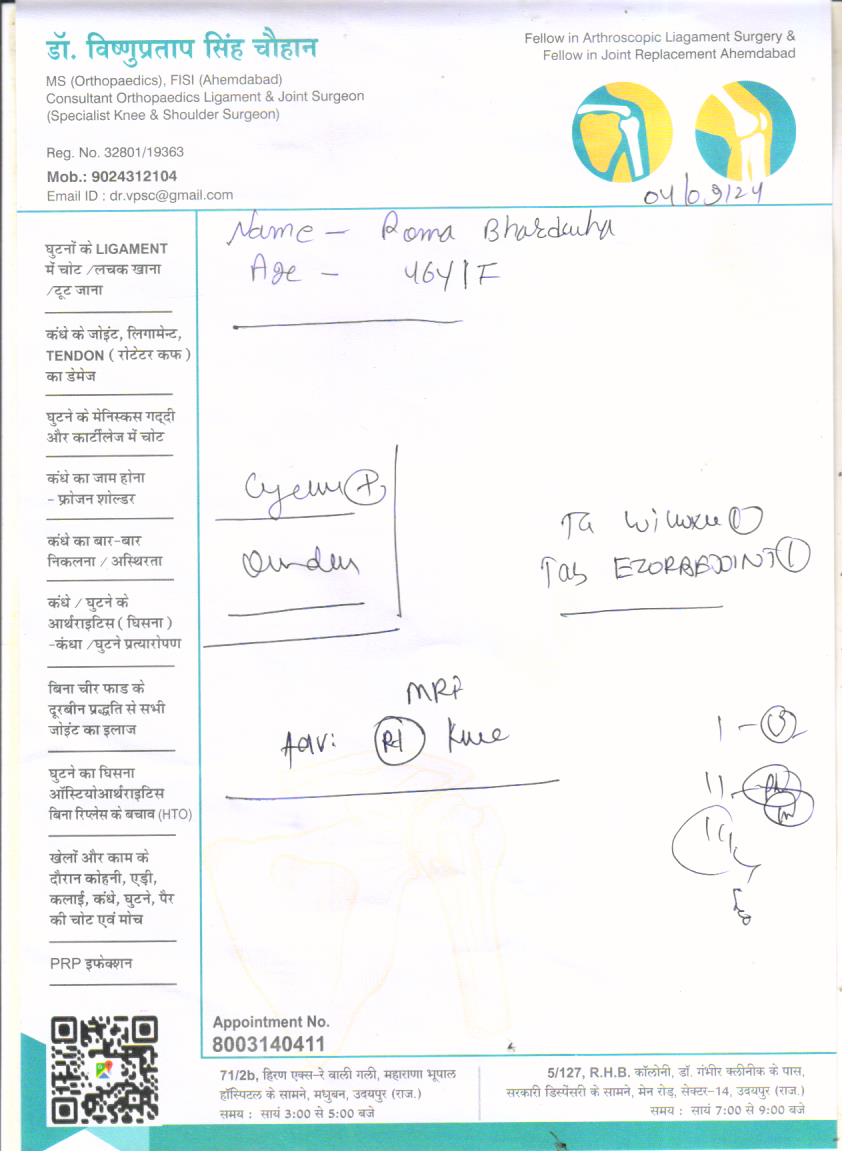 डॉ. विष्णुप्रताप सिंह चौहान
MS (Orthopaedics), FISI (Ahemdabad)
Consultant Orthopaedics Ligament & Joint Surgeon
(Specialist Knee & Shoulder Surgeon)
Reg. No. 32801/19363
Mob.: 9024312104
Email ID : dr.vpsc@gmail.com
Fellow in Arthroscopic Liagament Surgery &
Fellow in Joint Replacement Ahemdabad
04/09/24
घुटनों के LIGAMENT
में चोट /लचक खाना
/टूट जाना
कंधे के जोइंट, लिगामेन्ट,
TENDON ( रोटेटर कफ )
का डेमेज
घुटने के मेनिस्कस गद्दी
और कार्टीलेज में चोट
कंधे का जाम होना
- फ्रोजन शोल्डर
कंधे का बार-बार
निकलना / अस्थिरता
कंधे / घुटने के
आर्थराइटिस ( घिसना )
-कंधा /घुटने प्रत्यारोपण
बिना चीर फाड के
दूरबीन प्रद्धति से सभी
जोइंट का इलाज
घुटने का घिसना
ऑस्टियोआर्थराइटिस
बिना रिप्लेस के बचाव (HTO)
खेलों और काम के
दौरान कोहनी, एड़ी,
कलाई, कंधे, घुटने, पैर
की चोट एवं मोच
PRP इफेक्शन
Name - Roma
Age - 46Y/F
Tab
MRI
Adv: Rt Knee
Appointment No.
8003140411
71/2b, हिरण एक्स-रे वाली गली, महाराणा भूपाल
हॉस्पिटल के सामने, मधुबन, उदयपुर (राज.)
समय : सायं 3:00 से 5:00 बजे
5/127, R.H.B. कॉलोनी, डॉ. गंभीर क्लीनीक के पास,
सरकारी डिस्पेंसरी के सामने, मेन रोड़, सेक्टर-14, उदयपुर (राज.)
समय : सायं 7:00 से 9:00 बजे